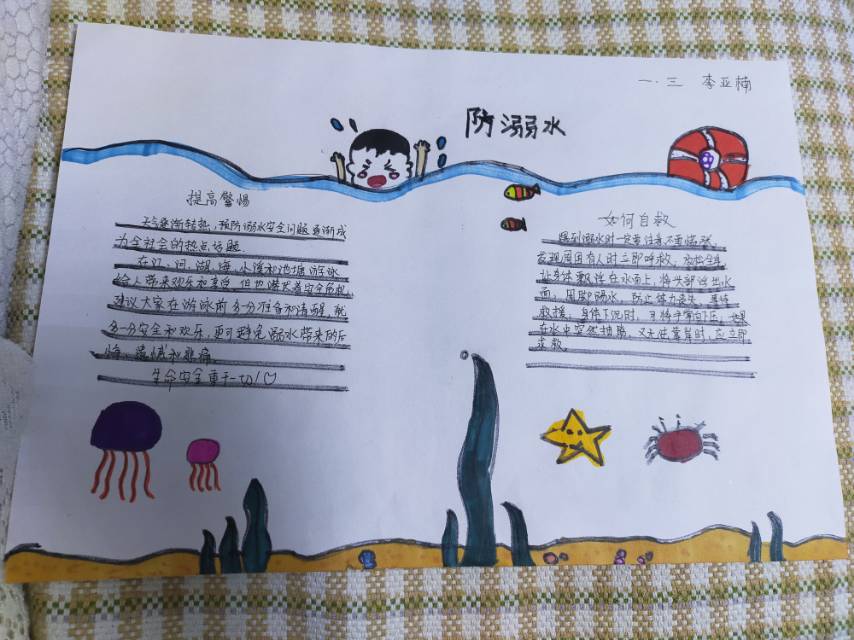 一.三 李亚楠
防溺水
提高警惕
天气逐渐转热，预防溺水安全问题逐渐成
为全社会的热点话题
在江、河、湖、海、小溪和池塘游泳
给人带来欢乐和享受，但也潜发着安全危机，
建议大家在游泳前多一分准备和清醒，就
多一分安全和欢乐，更可避免溺水带来的后
悔、遗憾和悲痛
生命安全重于一切！♡
如何自救
遇到溺水时一定要注意不要慌张，
发现周围有人时立即呼救，放松全身
让身体飘浮在水面上，将头部浮出水
面，用脚踢水，防止体力丧失，等待
救援，身体下沉时，可将手掌向下压，如果
在水中突然抽筋，又无法靠岸时，应立即
求救